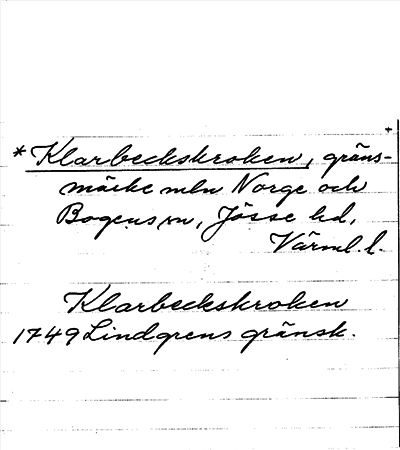 *Klarbeckskroken, gräns-
märke mln Norge och
Bogens sn, Jösse hd,
Värml. l.
Klarbeckskroken
1749 Lindgrens gränsk.